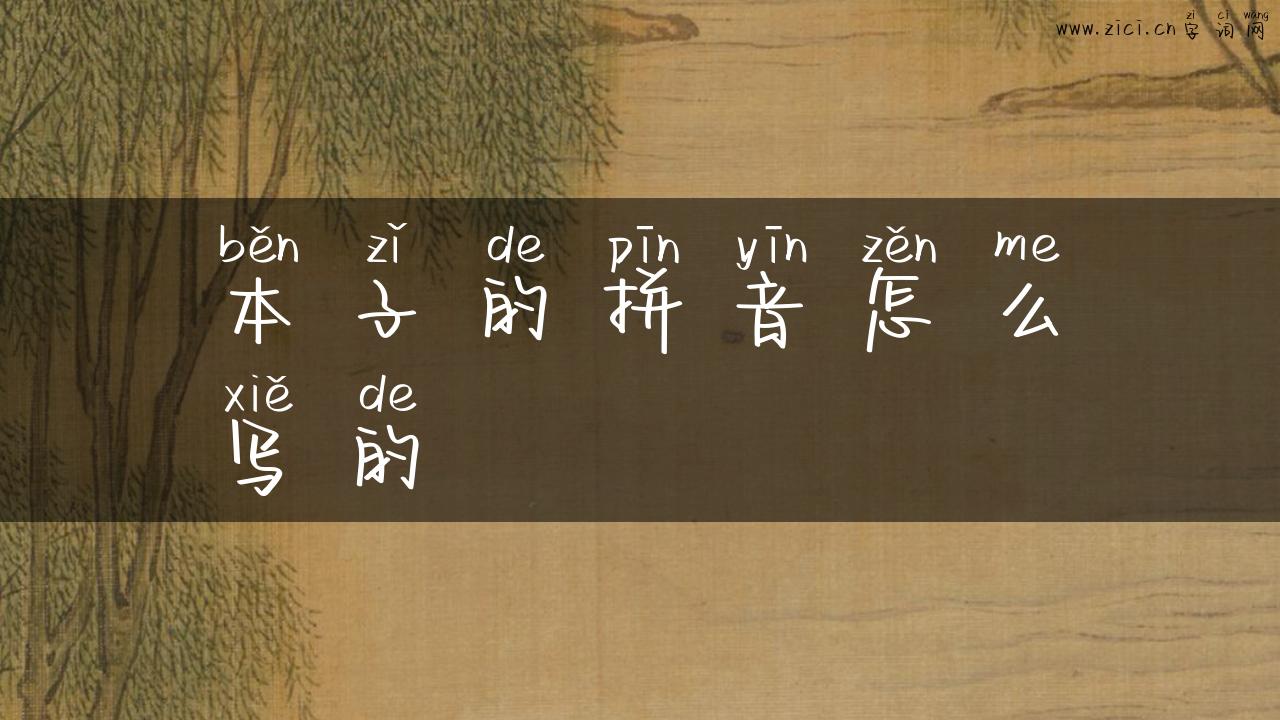 zì cí wǎng
www.zici.cn 字词网
běn zǐ de pīn yīn zěn me
本子的拼音怎么
xiě de
写的